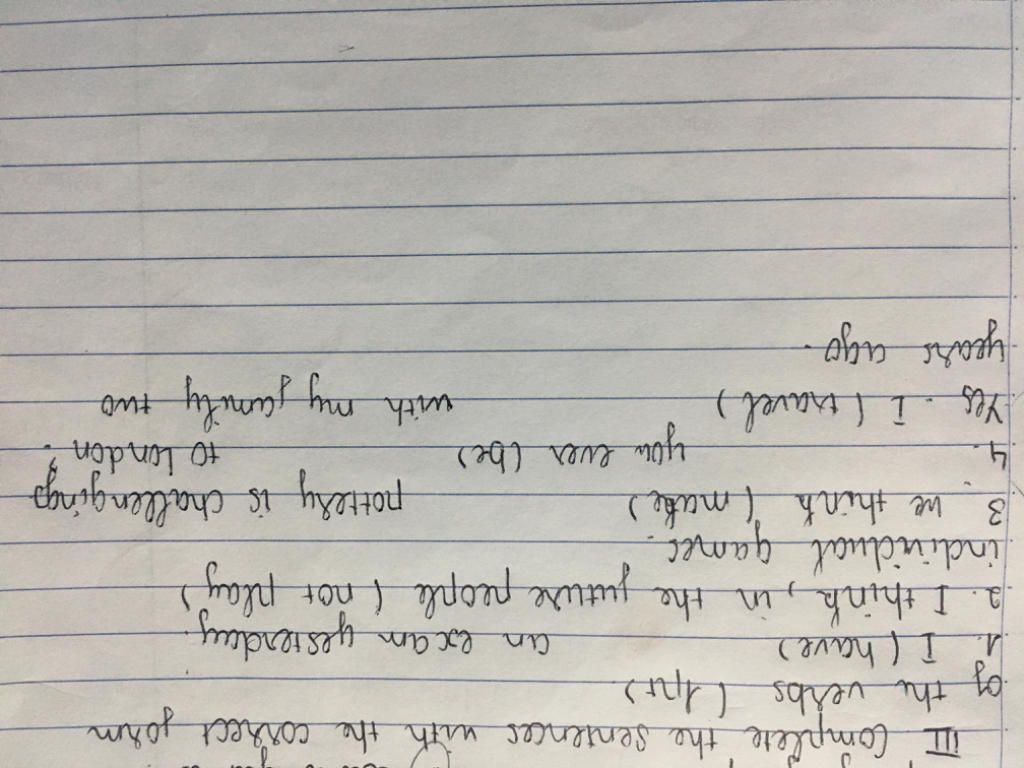 III Complete the sentences with the correct form
of the verbs (1pt)
1. I (have) an exam yesterday.
2. I think, in the future people (not play)
individual games.
3. We think (make) pottery is challenging?
4. you ever (be) to London.
Yes. I (travel) with my family two
years ago.